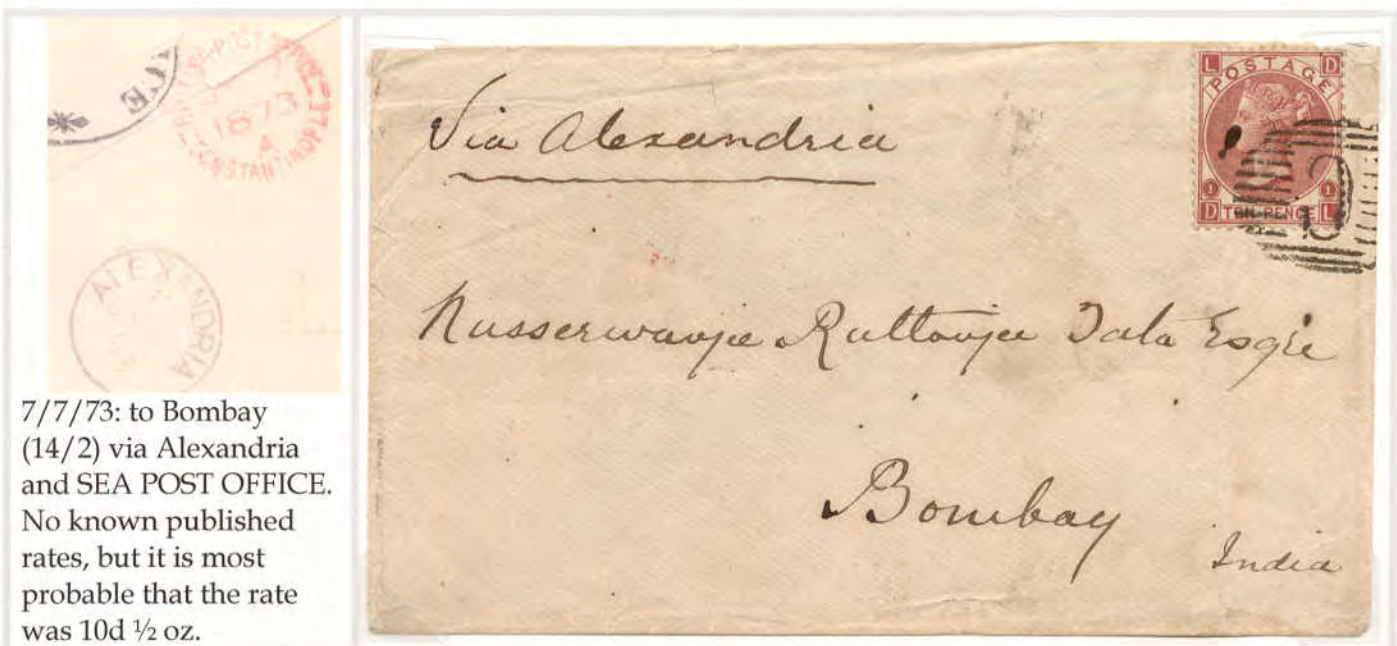 CE
BRITISH-POST-OFFICE
1873
A
CONSTANTINOPLE
ALEXANDRIA
7/7/73: to Bombay
(14/2) via Alexandria
and SEA POST OFFICE.
No known published
rates, but it is most
probable that the rate
was 10d ½ oz.
Via Alexandria
L D
POSTAGE
1 1
D TEN PENCE L
C
Nusserwanjee Ruttonjee Tata Esqre
Bombay
India